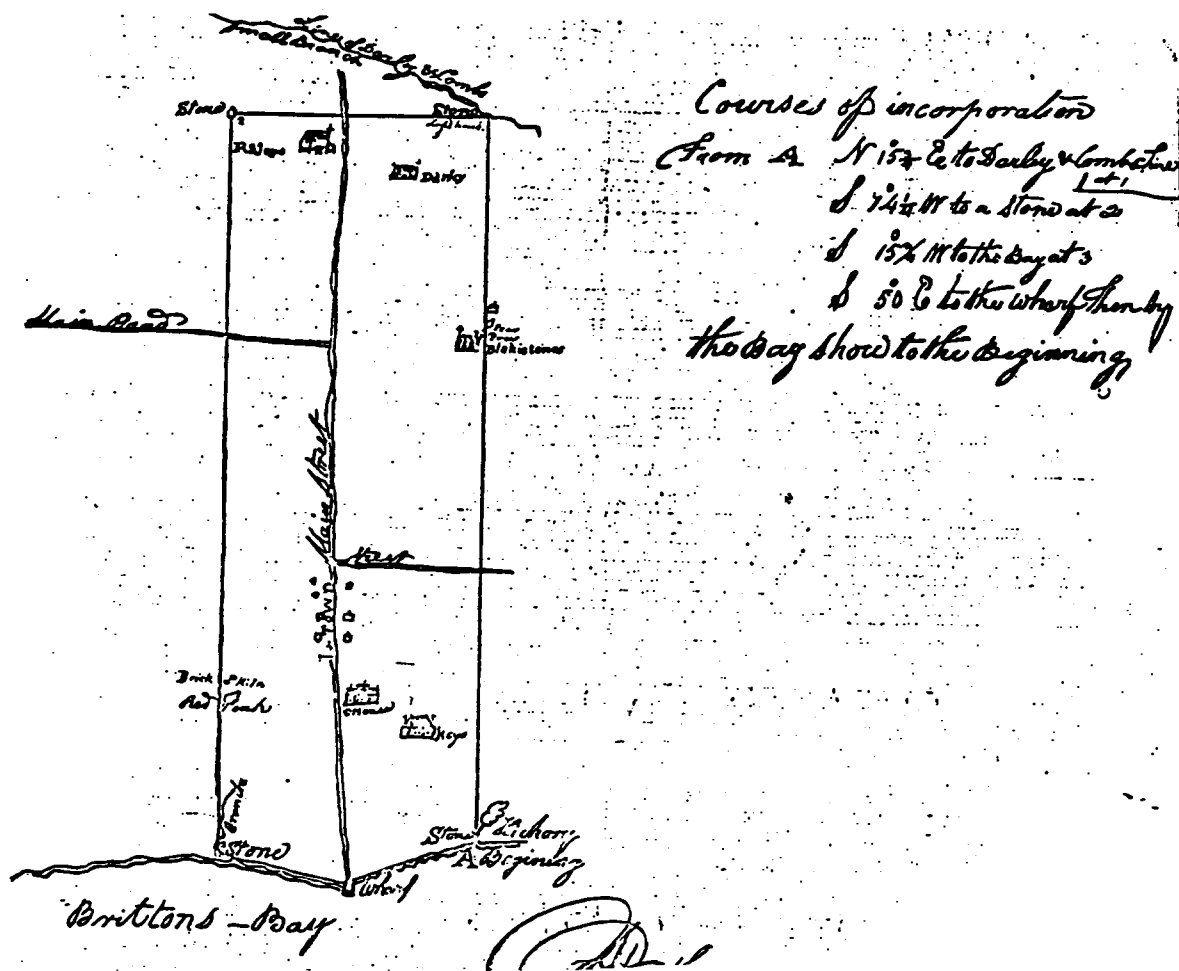 Line of Darby & Combs
Small Branch
Stone
2
Stone
Darby
Main Road
Blakistones
Main Street
Street
Town
Brick Kiln
Red
C House
Keys
Branch
Stone
Stone
Hickory
A Begining
Wharf
Brittons - Bay
Courses of incorporation
From A N 15¾ E to Darby & Combs Line
at 1
S 74¼ W to a Stone at 2
S 15¾ W to the Bay at 3
S 50 E to the Wharf Then by
the Bay Shore to the Beginning